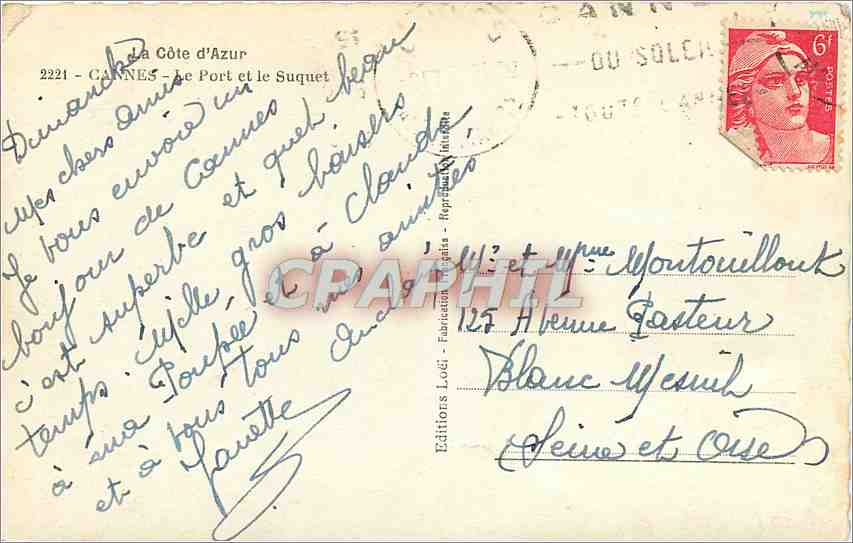 La Côte d'Azur
2221 - CANNES - Le Port et le Suquet
Dimanche
Mes chers amis
Je vous envoie un
bonjour de Cannes
c'est superbe et quel beau
temps. Mille gros baisers
à ma Poupée et à Claude
et à vous tous mes amitiés
Janette
Editions LOGI - Fabrication Française - Reproduction interdite
CANN
DU SOLEIL
TOUTE L'ANN
6f
POSTES
CPAPHIL
Mr et Mme Montouillout
125 Avenue Pasteur
Blanc Mesnil
Seine et Oise